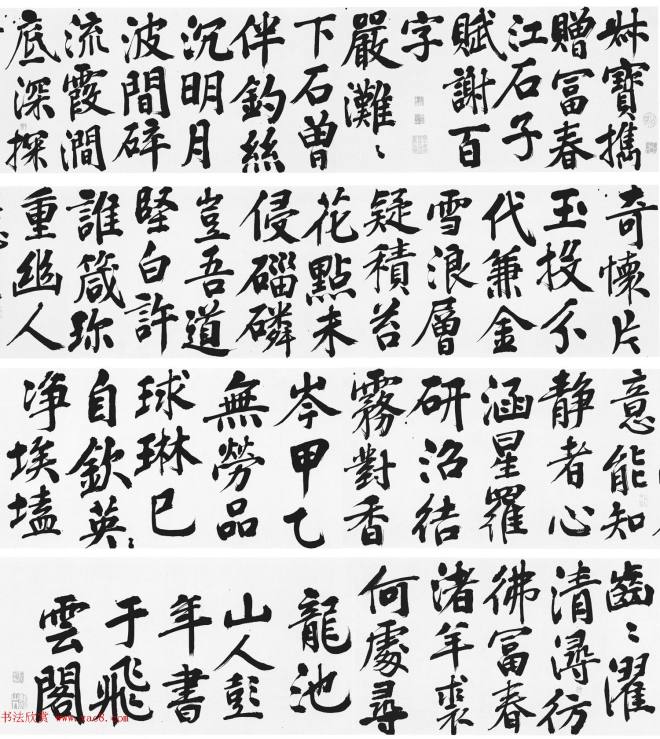 艸寶擕
贈富春
江石子
賦謝百
字
嚴灘〻
下石曽
伴釣絲
沉明月
波間碎
流霞澗
底深探
奇懷片
玉投不
代兼金
雪浪層
疑積苔
花點未
侵磷
豈吾道
堅白許
誰箴珎
重幽人
意能知
静者心
涵星羅
研沼結
霧對香
岑甲乙
無勞品
球琳已
自欽英〻
净埃壒
齒〻濯
清潯彷
彿富春
渚羊裘
何處尋
龍池
山人彭
年書
于飛
雲閣
书法欣赏 www.yac8.com